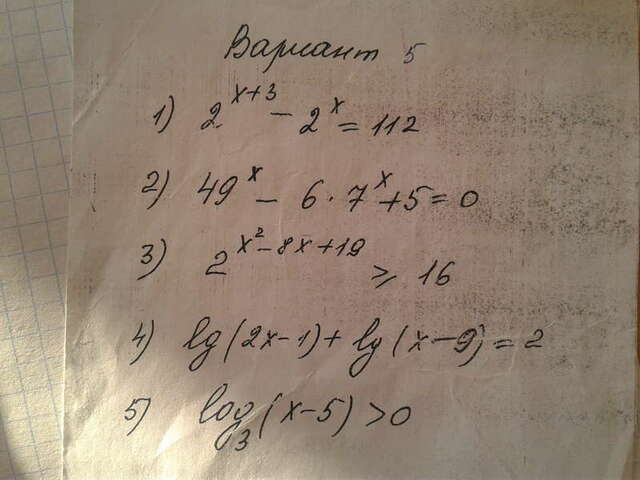 Вариант 5
1) 2^{x+3} - 2^x = 112
2) 49^x - 6·7^x+5=0
3) 2^{x²-8x+19} ≥ 16
4) lg(2x-1)+lg(x-9)=2
5) log₃(x-5)>0